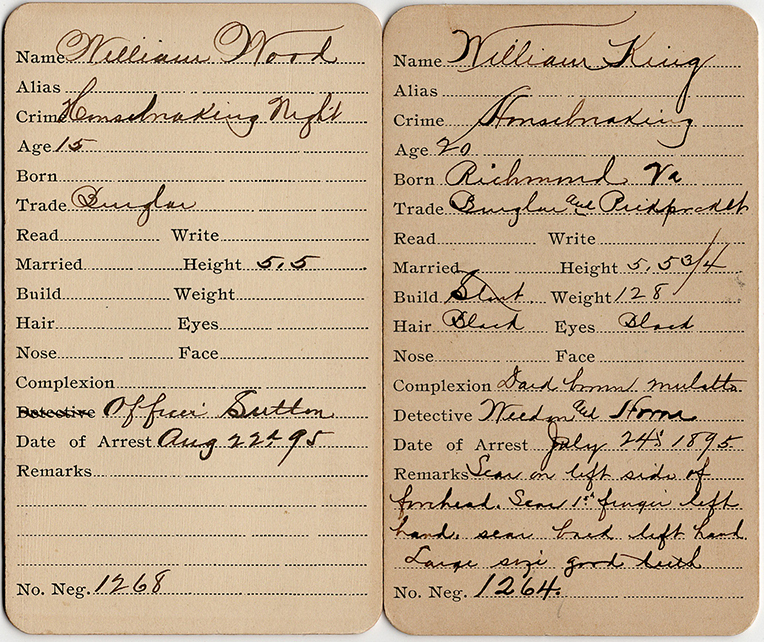 Name William Wood
Alias
Crime Housebreaking Night
Age 15
Born
Trade Burglar
Read Write
Married Height 5.5
Build Weight
Hair Eyes
Nose Face
Complexion
Detective Officer Sutton
Date of Arrest Aug 22d 95
Remarks
No. Neg. 1268
Name William King
Alias
Crime Housebreaking
Age 20
Born Richmond Va
Trade Burglar and
Read Write
Married Height 5.5 3/4
Build Stout Weight 128
Hair Black Eyes Black
Nose Face
Complexion Dark brown mulatto
Detective Weedon and Horne
Date of Arrest July 24th 1895
Remarks Scar on left side of
forehead. Scar 1st finger left
hand. scar back left hand.
Large size good teeth
No. Neg. 1264.